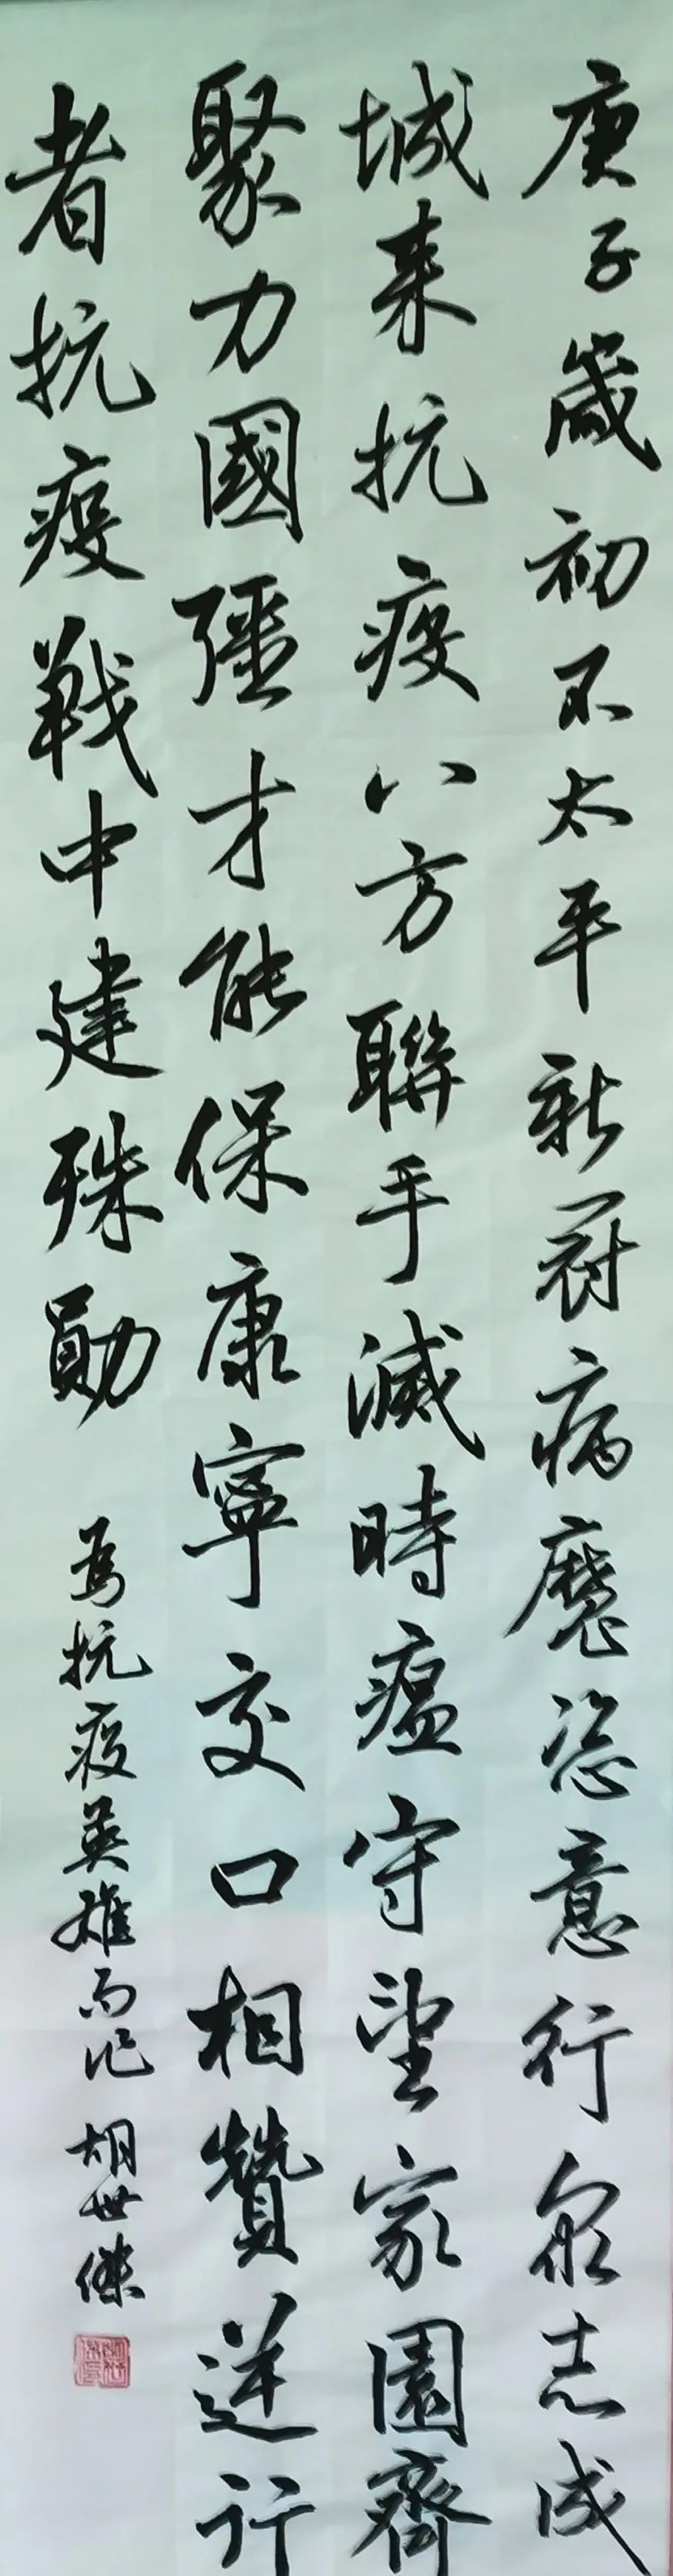 庚子歲初不太平新冠病魔恣意行衆志成
城来抗疫八方聯手滅時瘟守望家園齊
聚力國強才能保康寧交口相贊逆行
者抗疫戰中建殊勛
為抗疫英雄而作 胡世傑